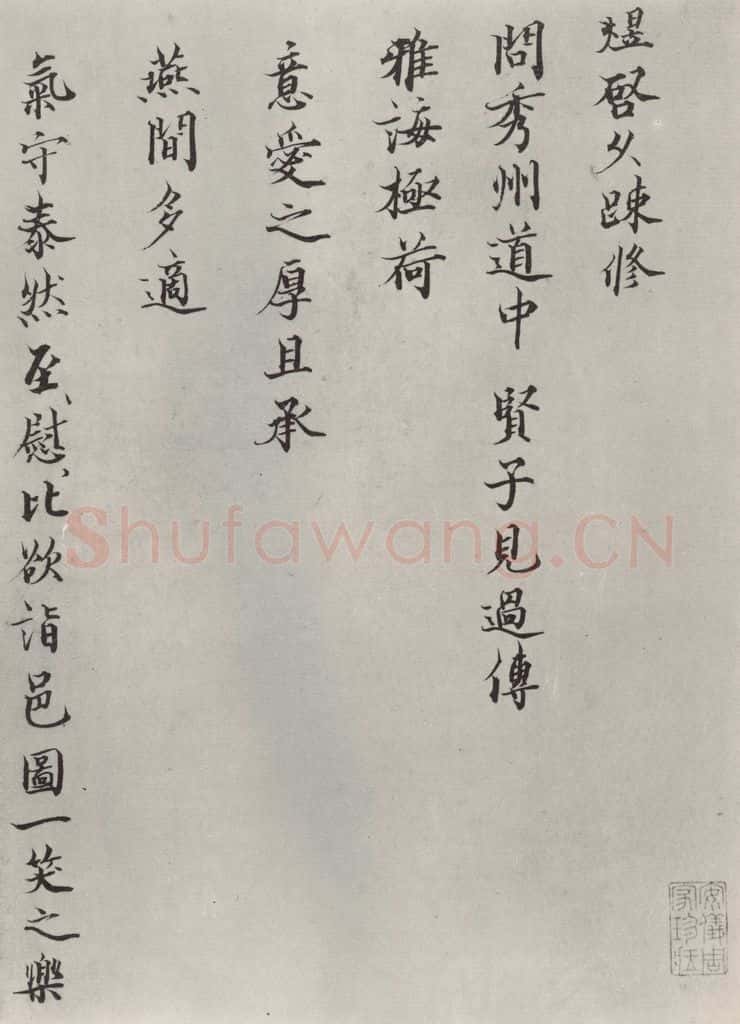 煜啓久疎修
問秀州道中賢子見過傳
雅誨極荷
意愛之厚且承
燕間多適
氣守泰然至慰比欲詣邑圖一笑之樂
Shufawang.CN
安儀周家珍藏